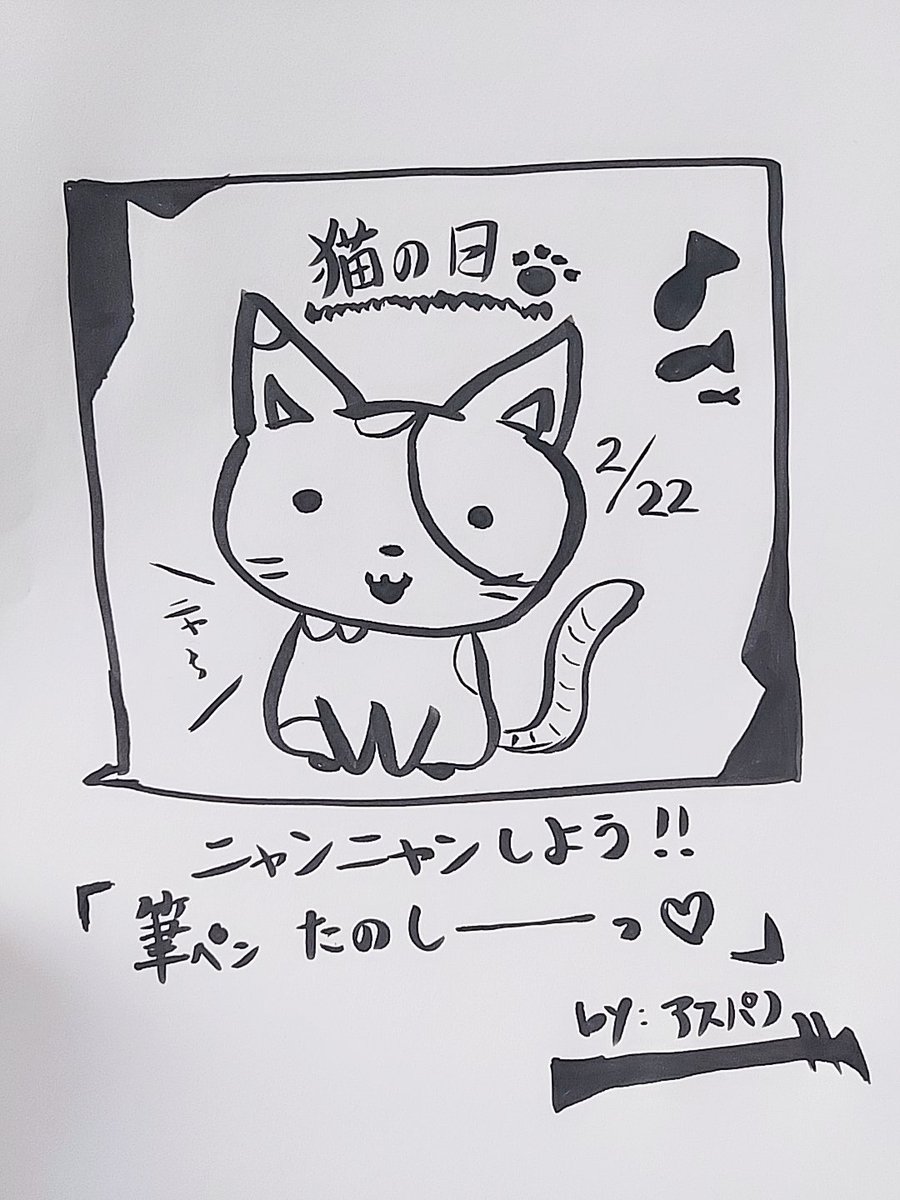 猫の日
2/22
ニャ〜
ニャンニャンしよう!!
「筆ペン たのしーーっ♡」
by:アスパラ